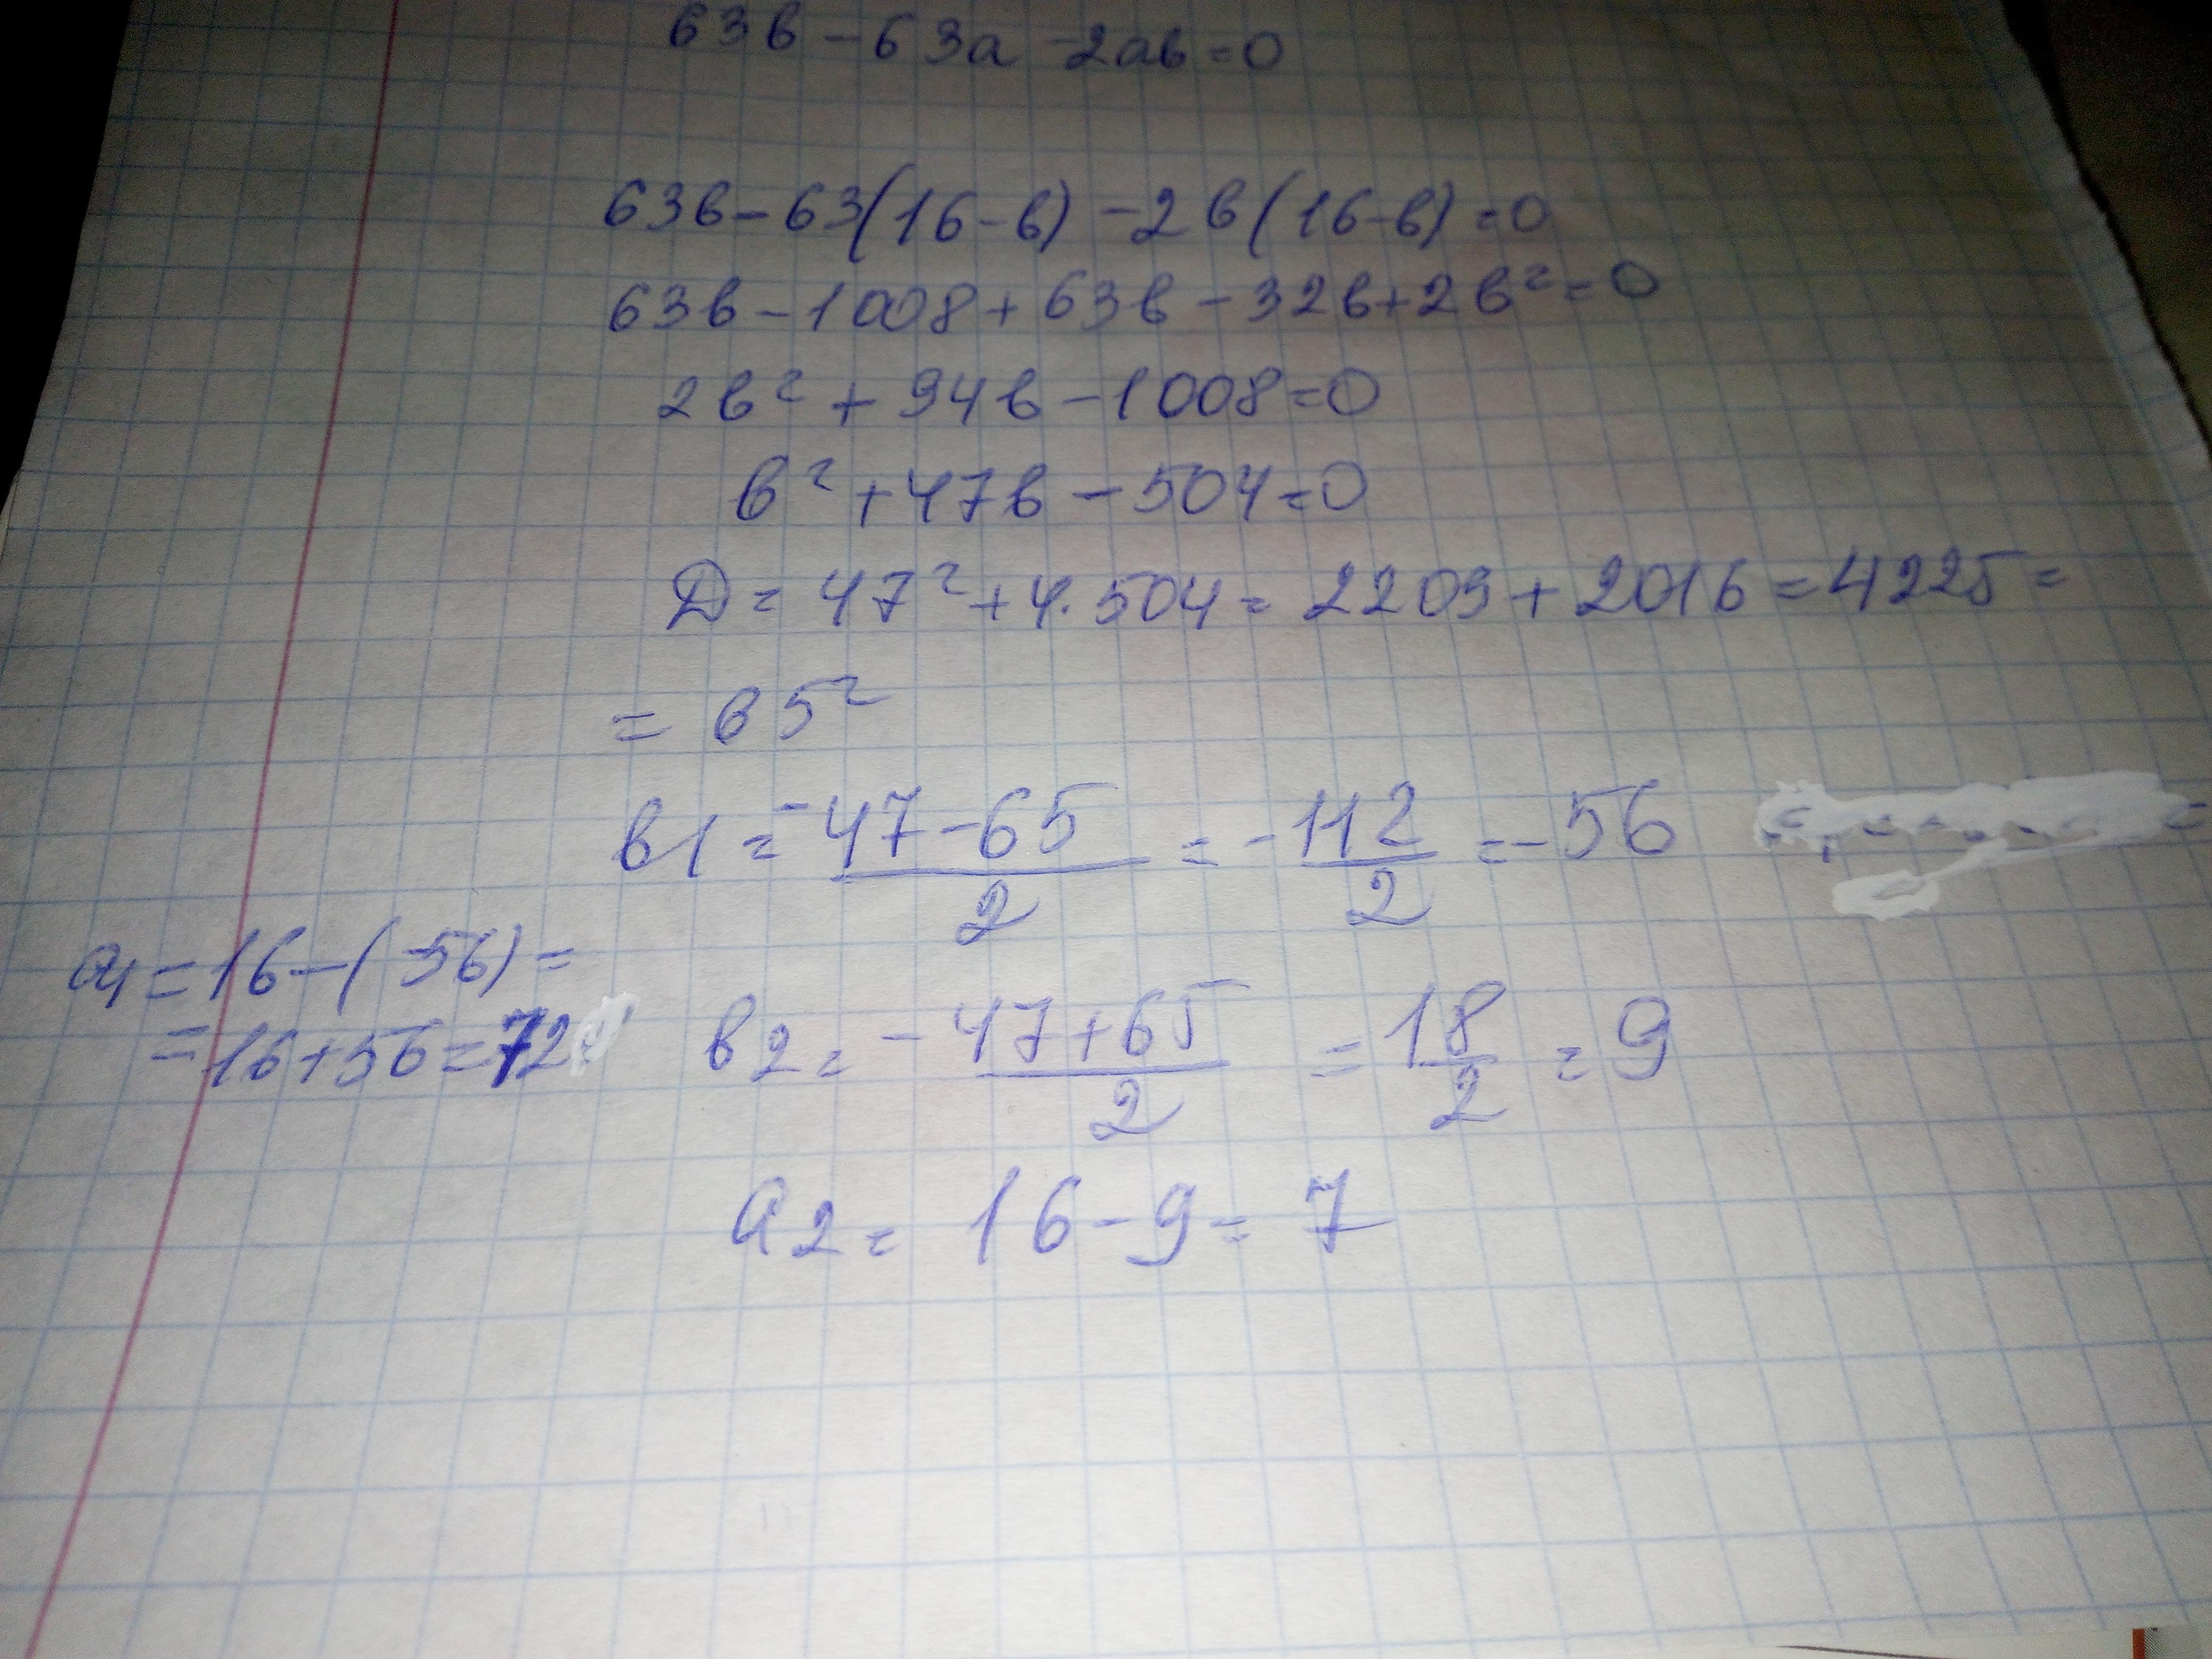 63в - 63а - 2ав = 0
63в - 63(16-в) - 2в(16-в) = 0
63в - 1008 + 63в - 32в + 2в² = 0
2в² + 94в - 1008 = 0
в² + 47в - 504 = 0
Д = 47² + 4·504 = 2209 + 2016 = 4225 =
= 65²
в1 = -47-65/2 = -112/2 = -56
а1 = 16-(-56) =
= 16+56 = 72
в2 = -47+65/2 = 18/2 = 9
а2 = 16-9 = 7